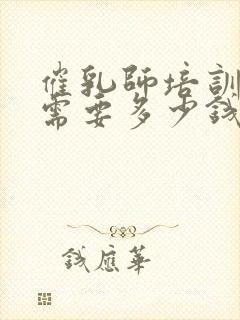 催乳師培訓
需要多少錢
錢應華